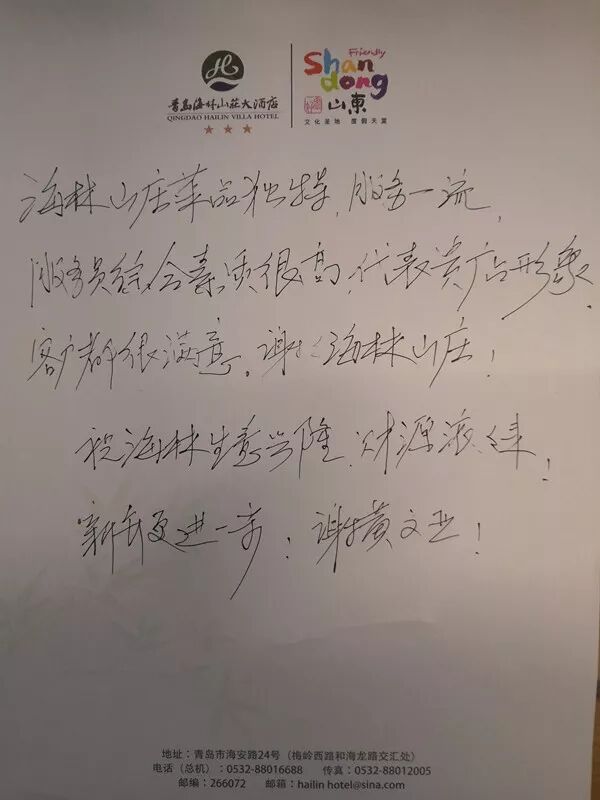 Friendly
Shan
dong
山東
文化圣地 度假天堂
青岛海林山莊大酒店
QINGDAO HAILIN VILLA HOTEL
海林山庄菜品独特，服务一流，
服务员综合素质很高，代表贵店形象，
客户都很满意。谢谢海林山庄！
祝海林生意兴隆，财源滚滚来！
新年更进一步！谢谢黄文亚！
地址：青岛市海安路24号（梅岭西路和海龙路交汇处）
电话（总机）：0532-88016688 传真：0532-88012005
邮编：266072 邮箱：hailin hotel@sina.com